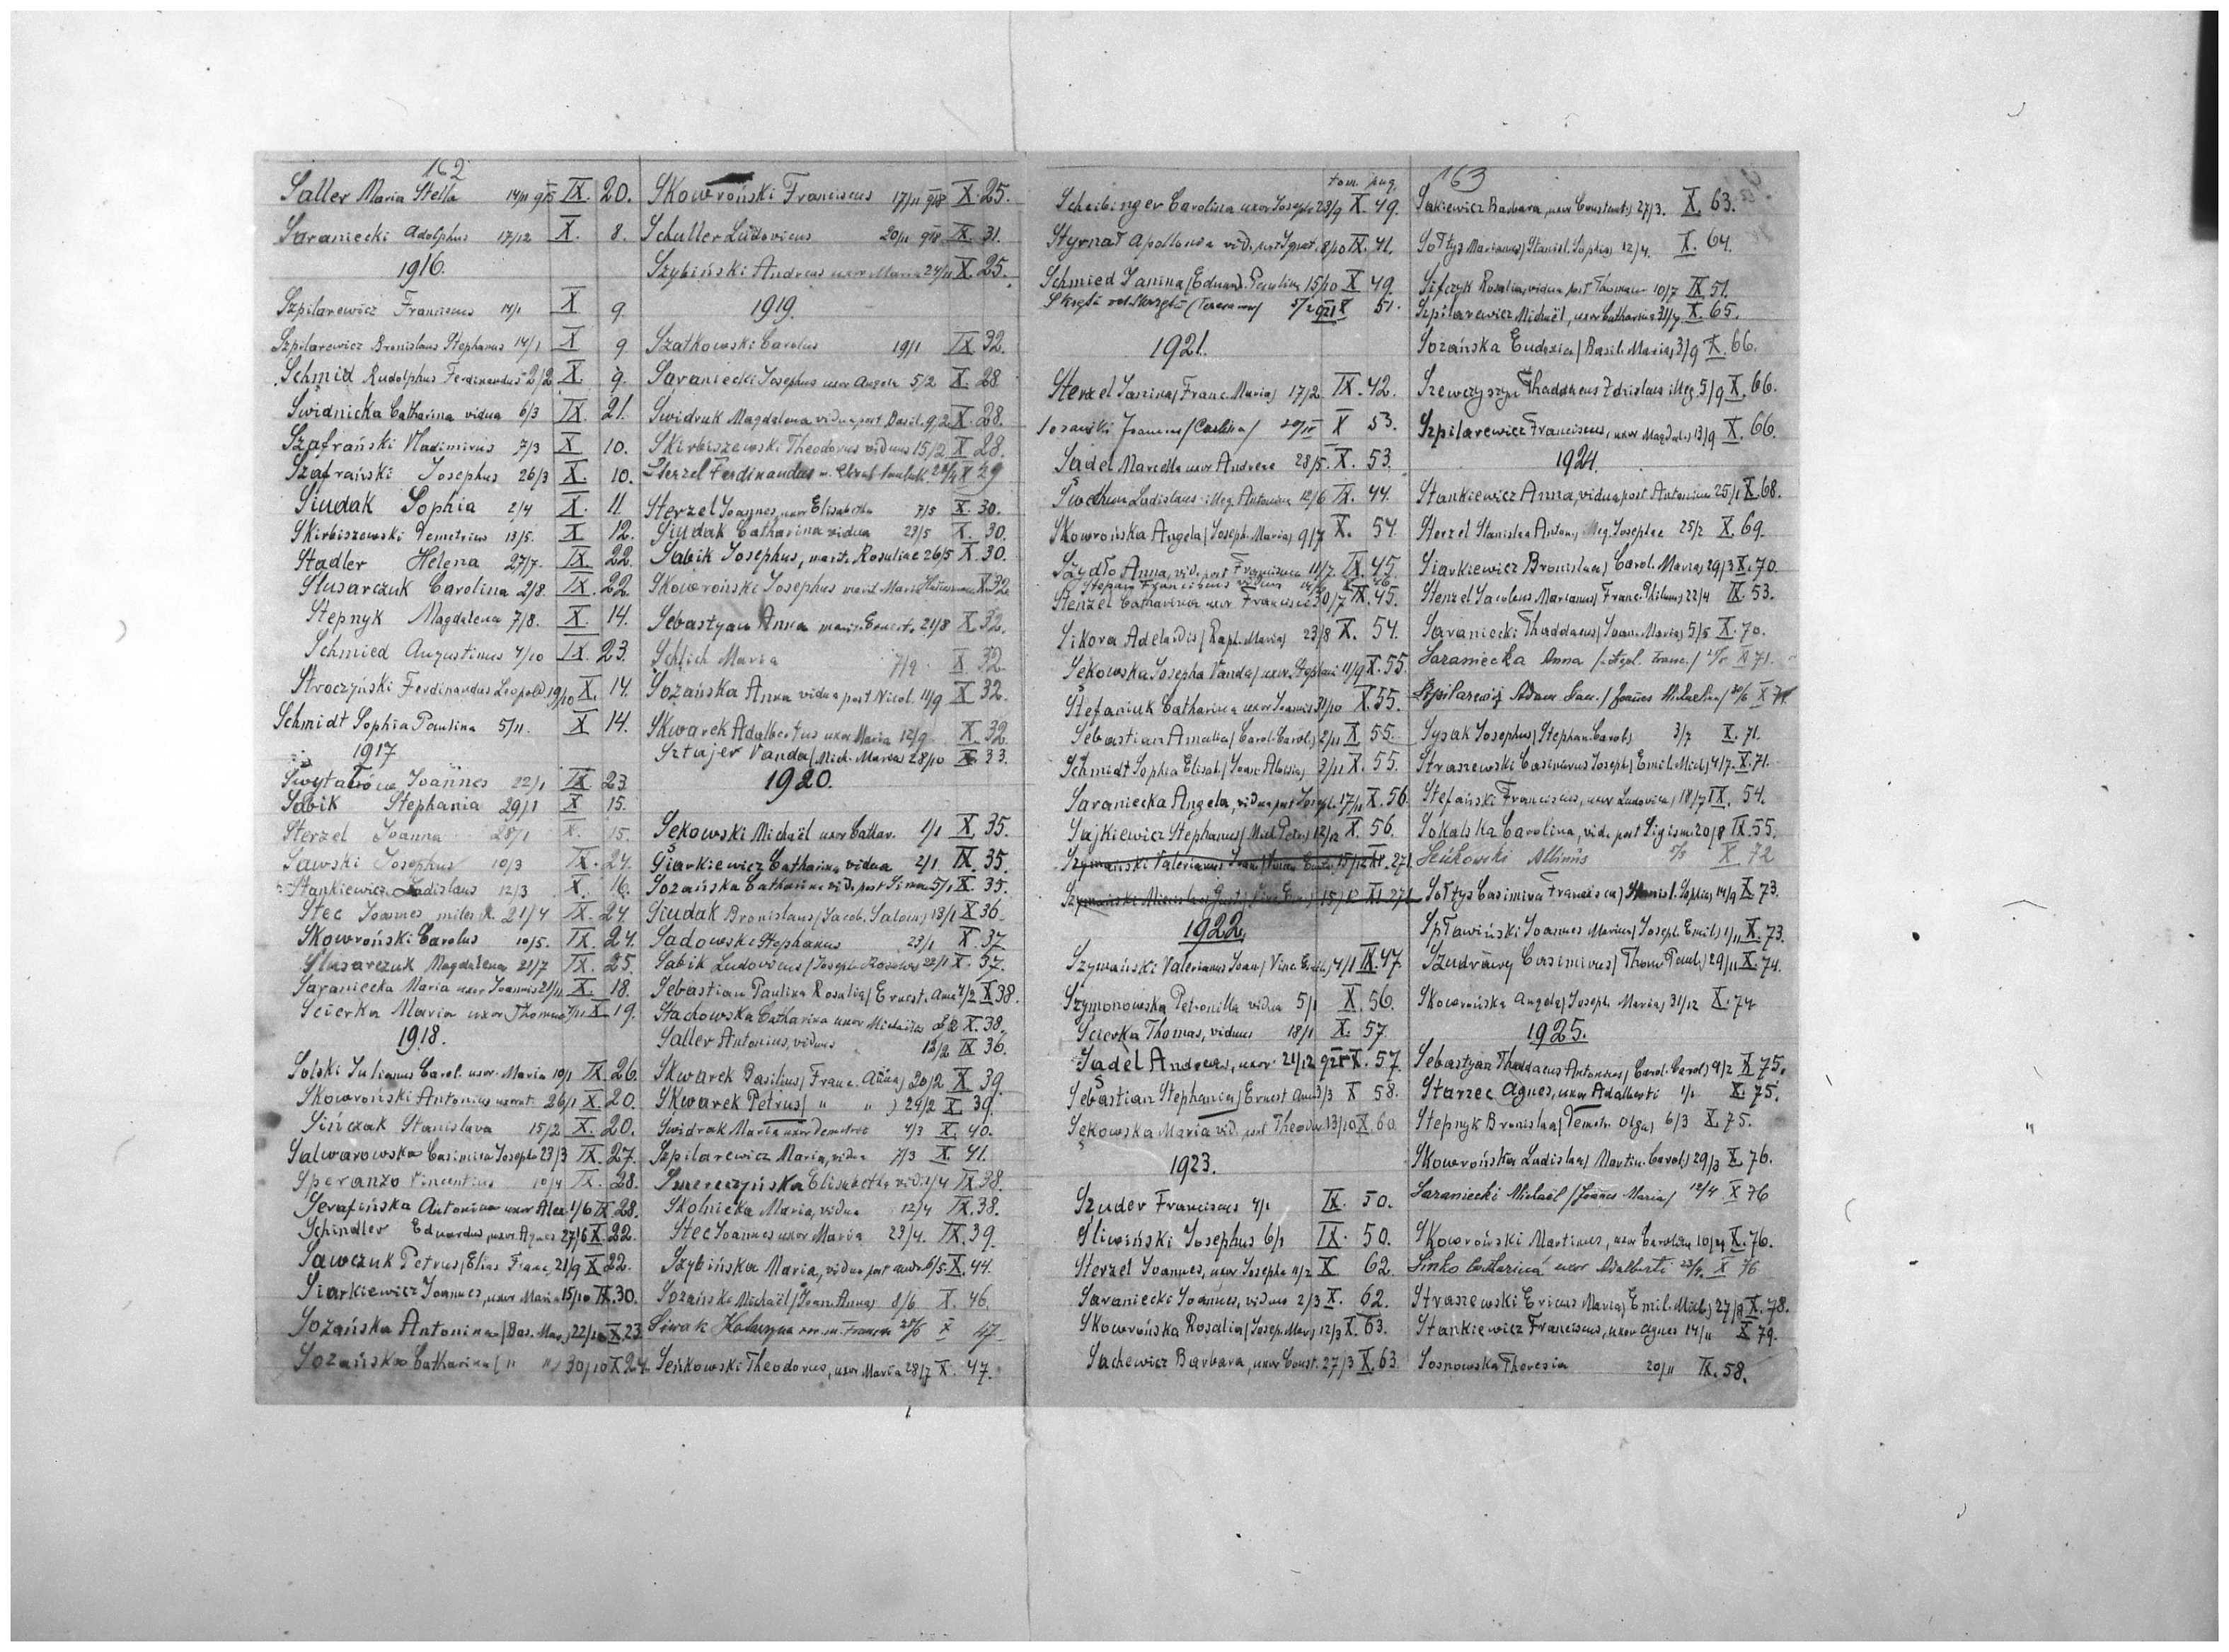 162
Saller Maria Stella 14/11 915 IX. 20.
Saraniecki Adolphus 17/12 X. 8.
1916.
Szpilarewicz Franciscus 14/1 X 9
Szpilarewicz Bronislaus Stephanus 14/1 X 9
Schmid Rudolphus Ferdinandus 2/2 X. 9.
Swidnicka Catharina vidua 6/3 IX. 21.
Szafrański Vladimirus 7/3 X 10.
Szafrański Josephus 26/3 X. 10.
Siudak Sophia 2/4 X. 11
Skirbiszewski Demetrius 13/5. X 12.
Stadler Helena 27/7. IX. 22.
Slusarczuk Carolina 2/8. IX. 22
Stepnyk Magdalena 7/8. X. 14.
Schmied Augustinus 4/10 IX. 23.
Stroczyński Ferdinandus Leopold 19/10 X. 14.
Schmidt Sophia Paulina 5/11. X 14.
1917
Joannes 22/1 IX 23
Sabik Stephania 29/1 X 15.
Sterzel Joanna 28/1 X. 15.
Sawski Josephus 10/3 IX. 24.
Stankiewicz Ladislaus 12/3 X. 16.
Stec Joannes, miles 21/4 IX. 24.
Skowroński Carolus 10/5. IX. 24.
Slusarczuk Magdalena 21/7 IX. 25.
Saraniecka Maria uxor Joannis 21/11 X. 18.
Scierka Maria uxor Thomae X 19.
1918.
Solski Julianus Carol. uxor. Maria 10/1 IX. 26.
Skowroński Antonius 26/1 X. 20.
Sińczak Stanislava 15/2 X. 20.
Salwarowska Casimira Josepha 23/3 IX. 27.
Speranzo Vincentius 10/4 IX. 28.
Serafińska Antonina uxor Alex. 1/6 IX 28.
Schindler Eduardus, uxor. Agnes 27/6 X. 22.
Sawczuk Petrus/Elias Franc. 21/9 X 22.
Siarkiewicz Joannes, uxor Maria 15/10 IX. 30.
Sozańska Antonina (Bas. Mar.) 22/10 X 23
Sozańska Catharina (" ") 30/10 X 24.
Skowroński Franciscus 17/11 918 X. 25.
Schuller Ludovicus 20/11 918 IX. 31.
Szybiński Andreas uxor Maria 24/11 X. 25.
1919.
Szatkowski Carolus 19/1 IX 32.
Saraniecki Josephus uxor Angela 5/2 X. 28
Swidruk Magdalena vidua post Basil. 9.2 X. 28.
Skirbiszewski Theodorus viduus 15/2 X 28.
Sterzel Ferdinandus X 29
Sterzel Joannes, uxor Elisabetha 7/5 X. 30.
Siudak Catharina vidua 23/5 X. 30.
Sabik Josephus, marit. Rosaliae 26/5 X. 30.
Skowroński Josephus marit. Maria X 32
Sebastyan Anna marit. Ernest. 21/8 X 32.
Schlich Maria 7/9. X 32
Sozańska Anna vidua post Nicol. 11/9 X 32.
Skwarek Adalbertus uxor Maria 12/9. X. 32.
Sztajer Vanda (Mich. Maria) 28/10 X 33.
1920.
Sękowski Michaël uxor Cathar. 1/1 X, 35.
Siarkiewicz Catharina vidua 2/1 IX. 35.
Sozańska Catharina vid. post Simon 5/1 X. 35.
Siudak Bronislaus (Jacob. Salom.) 13/1 X 36.
Sadowski Stephanus 23/1 X. 37
Sabik Ludovicus (Joseph. Rosalia) 22/1 X. 37.
Sebastian Paulina Rosalia (Ernest. Ama) 4/2 X 38.
Stachowska Catharina uxor Michaëlis X. 38.
Saller Antonius, viduus 12/2 IX 36.
Skwarek Basilius (Franc. Anna) 20/2 X 39.
Skwarek Petrus (" ") 24/2 X. 39.
Swidrak Maria uxor Demetrii 4/3 X. 40.
Szpilarewicz Maria, vidua 7/3 X. 41.
Smereczyńska Elisabetha vid. 1/4 IX. 38.
Skolnicka Maria, vidua 12/4 IX. 38.
Stec Joannes uxor Maria 23/4. IX. 39.
Szybińska Maria, vidua post Andr. 6/5 X. 44.
Sozański Michaël (Joan. Anna) 8/6 X. 46.
Siwak X 47
Seńkowski Theodorus, uxor Maria 28/7 X. 47.
tom. pag. 163
Scheibinger Carolina uxor Josephi 23/9 X. 49.
Styrnał Apollonia vid. post Ignat. 8/10 IX. 41.
Schmied Janina (Eduard. Paulina) 15/10 X 49.
5/2 921 X 51.
1921.
Sterzel Janina (Franc. Maria) 17/2 IX. 42.
X 53.
Sądel Marcella uxor Andreae 28/5. X. 53.
Ladislaus illeg. Antonina 12/6 IX. 44.
Skowrońska Angela (Joseph. Maria) 9/7 X. 54.
Szydło Anna, vid. post Franciscum 11/7. IX. 45.
Stepan Franciscus viduus
Stenzel Catharina uxor Francisci 30/7 IX. 45.
Sikora Adelaidis (Rapl. Maria) 23/8 X. 54.
Sękowska Josepha Vanda (uxor. Stephani 11/9 X. 55.
Stefaniuk Catharina uxor Joannis 31/10 X. 55.
Sebastian Amalia (Carol. Carol.) 2/11 X 55.
Schmidt Sophia Elisab. (Joan. Aloisia) 3/11 X. 55.
Saraniecka Angela, vidua post Joseph. 17/11 X. 56.
Sajkiewicz Stephanus (Mich. Petr.) 12/12 X. 56.
Szymański Valerianus 15/12 271
Szymański 15/12 XI. 271
1922.
Szymański Valerianus Joan. (Vinc. Emil.) 4/1 IX. 47.
Szymonowska Petronilla vidua 5/1 X. 56.
Scierka Thomas, viduus 18/1 X. 57.
Sądel Andreas, uxor. 21/12 921 X. 57.
Sebastian Stephania (Ernest Ama) 3/3 X 58.
Sękowska Maria vid. post Theodor. 13/10 X. 60.
1923.
Szuder Franciscus 4/1 IX. 50.
Sliwiński Josephus 6/1 IX. 50.
Sterzel Joannes, uxor Josepha 11/2 X 62.
Saraniecki Joannes, viduus 2/3 X. 62.
Skowrońska Rosalia (Josep. Mar.) 12/3 X. 63.
Sachewicz Barbara, uxor Const. 27/3 X. 63.
Sakiewicz Barbara, uxor Constant. 27/3. X. 63.
Sołtys Marianus (Stanisl. Sophia) 12/4. X. 64.
Sifczyk Rosalia, vidua post Thomam 10/7 IX 51.
Szpilarewicz Michaël, uxor Catharina 31/7 X. 65.
Sozańska Eudoxia (Basil. Maria) 3/9 X. 66.
Szewczyszyn Thaddaeus Zdzislaus illeg. 5/9 X. 66.
Szpilarewicz Franciscus, uxor Magdal. 13/9 X. 66.
1924.
Stankiewicz Anna, vidua post Antonium 25/1 X. 68.
Sterzel Stanislaa Anton. illeg. Josephae 25/2 X. 69.
Siarkiewicz Bronislaa (Carol. Maria) 29/3 X. 70.
Stenzel Jacobus Marianus (Franc. Philom.) 22/4 IX. 53.
Saraniecki Thaddaeus (Joan. Maria) 5/5 X. 70.
Saraniecka Anna (Stepl. Franc.) XI 71.
Szpilarewicz Adam (Joannes Michaelina) X 71
Sysak Josephus (Stephan. Carol.) 3/7 X. 71.
Straszewski Casimirus Joseph (Emil. Mich.) 4/7. X. 71.
Stefański Franciscus, uxor Ludovica 18/7 IX. 54.
Sokalska Carolina, vid. post Sigism. 20/8 IX. 55.
Seńkowski Albinus X 72
Sołtys Casimira Francisca (Stanisl. Sophia) 14/9 X. 73.
Spławiński Joannes Marius (Joseph. Emil.) 1/11 X. 73.
Casimirus (Thom. Paul.) 29/11 X. 74.
Skowrońska Angela (Joseph. Maria) 31/12 X. 74
1925.
Sebastyan Thaddaeus Antonius (Carol. Carol.) 9/2 X 75.
Starzec Agnes, uxor Adalberti 1/1 X. 75.
Stepnyk Bronislaa (Demetr. Olga) 6/3 X. 75.
Skowrońska Ladislaa (Martin. Carol.) 29/3 X. 76.
Saraniecki Michaël (Joannes Maria) 12/4 X 76
Skowroński Martinus, uxor Carolina 10/4 X. 76.
Sinko Catharina uxor Adalberti X 76
Straszewski Ericus Maria (Emil. Mich.) 27/8 X. 78.
Stankiewicz Franciscus, uxor Agnes 14/11 X 79.
Sosnowska Theresia 20/11 IX. 58.